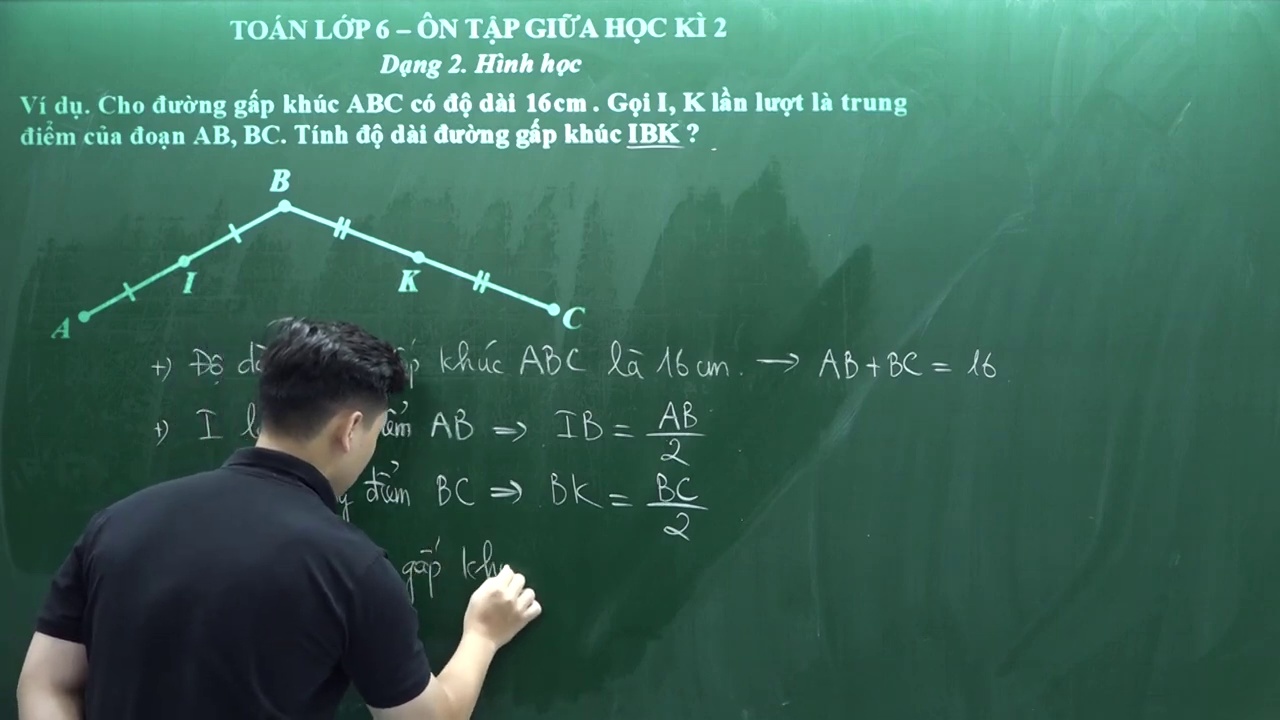 TOÁN LỚP 6 – ÔN TẬP GIỮA HỌC KÌ 2
Dạng 2. Hình học
Ví dụ. Cho đường gấp khúc ABC có độ dài 16cm . Gọi I, K lần lượt là trung
điểm của đoạn AB, BC. Tính độ dài đường gấp khúc IBK ?
B
I
K
A
C
+) Độ khúc ABC là 16cm. → AB + BC = 16
+) I AB ⇒ IB = AB/2
điểm BC ⇒ BK = BC/2
gấp